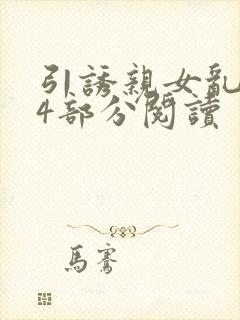 引誘親女亂
4部分閱讀
馬騫